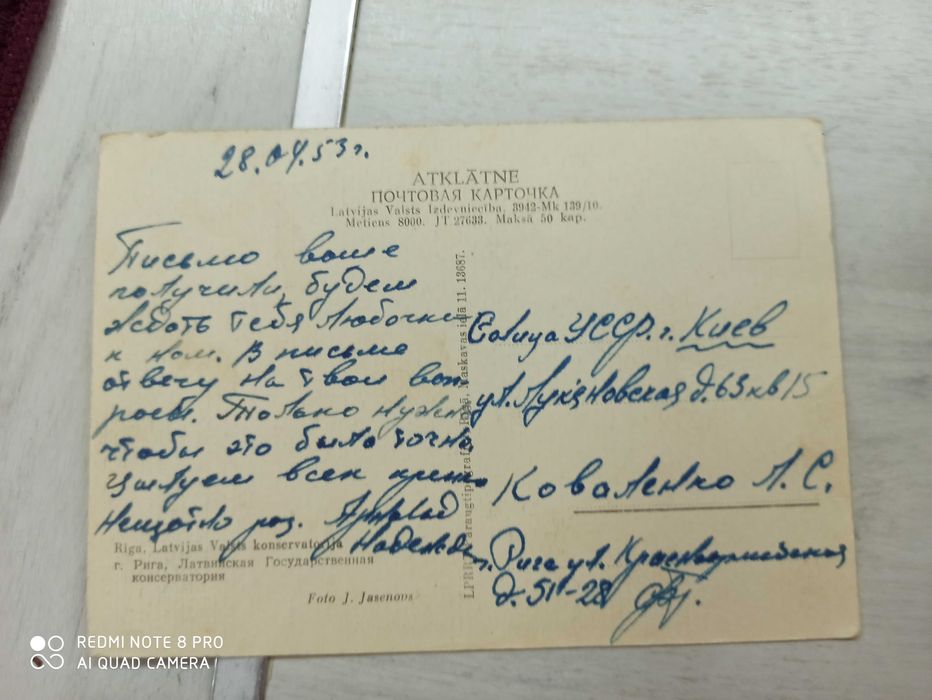 28.04.53г.
ATKLĀTNE
ПОЧТОВАЯ КАРТОЧКА
Latvijas Valsts Izdevniecība. 3942-Mk 139/10.
Metiens 8000. JT 27633. Maksā 50 kap.
Письмо ваше
получили, будем
ждать тебя Любочка
к нам. В письме
отвечу на твои воп
росы. Только нужно
чтобы это было точно
целуем всех крепко
Надежда
Riga, Latvijas Valsts konservatorija
г. Рига, Латвийская Государственная
консерватория
Foto J. Jasenovs
Maskavas ielā 11. 13687.
УССР. г. Киев
ул. Лукяновская д. 63 кв 15
Коваленко Л. С.
г. Рига ул. Красноармейская
д. 51-28
REDMI NOTE 8 PRO
AI QUAD CAMERA